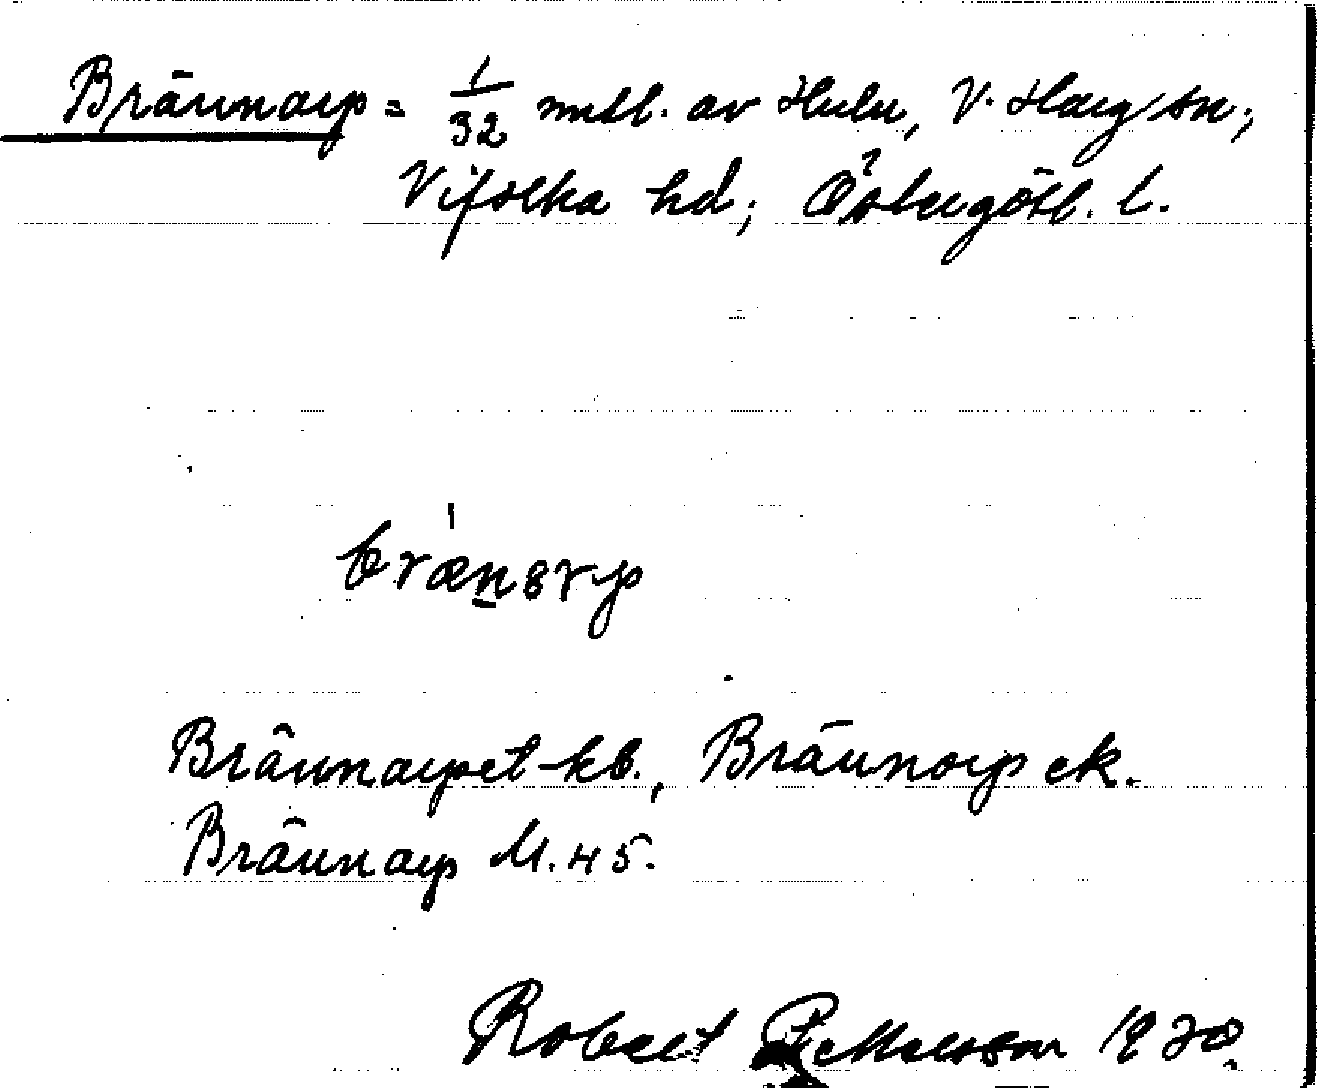 Brännarp = 1/32 mtl. av Hulu, V. Harg sn;
Vifolka hd; Östergötl. l.
brænərp
Brännarpet kb., Brännorp ek.
Brännarp M. 45.
Robert Pettersson 1928